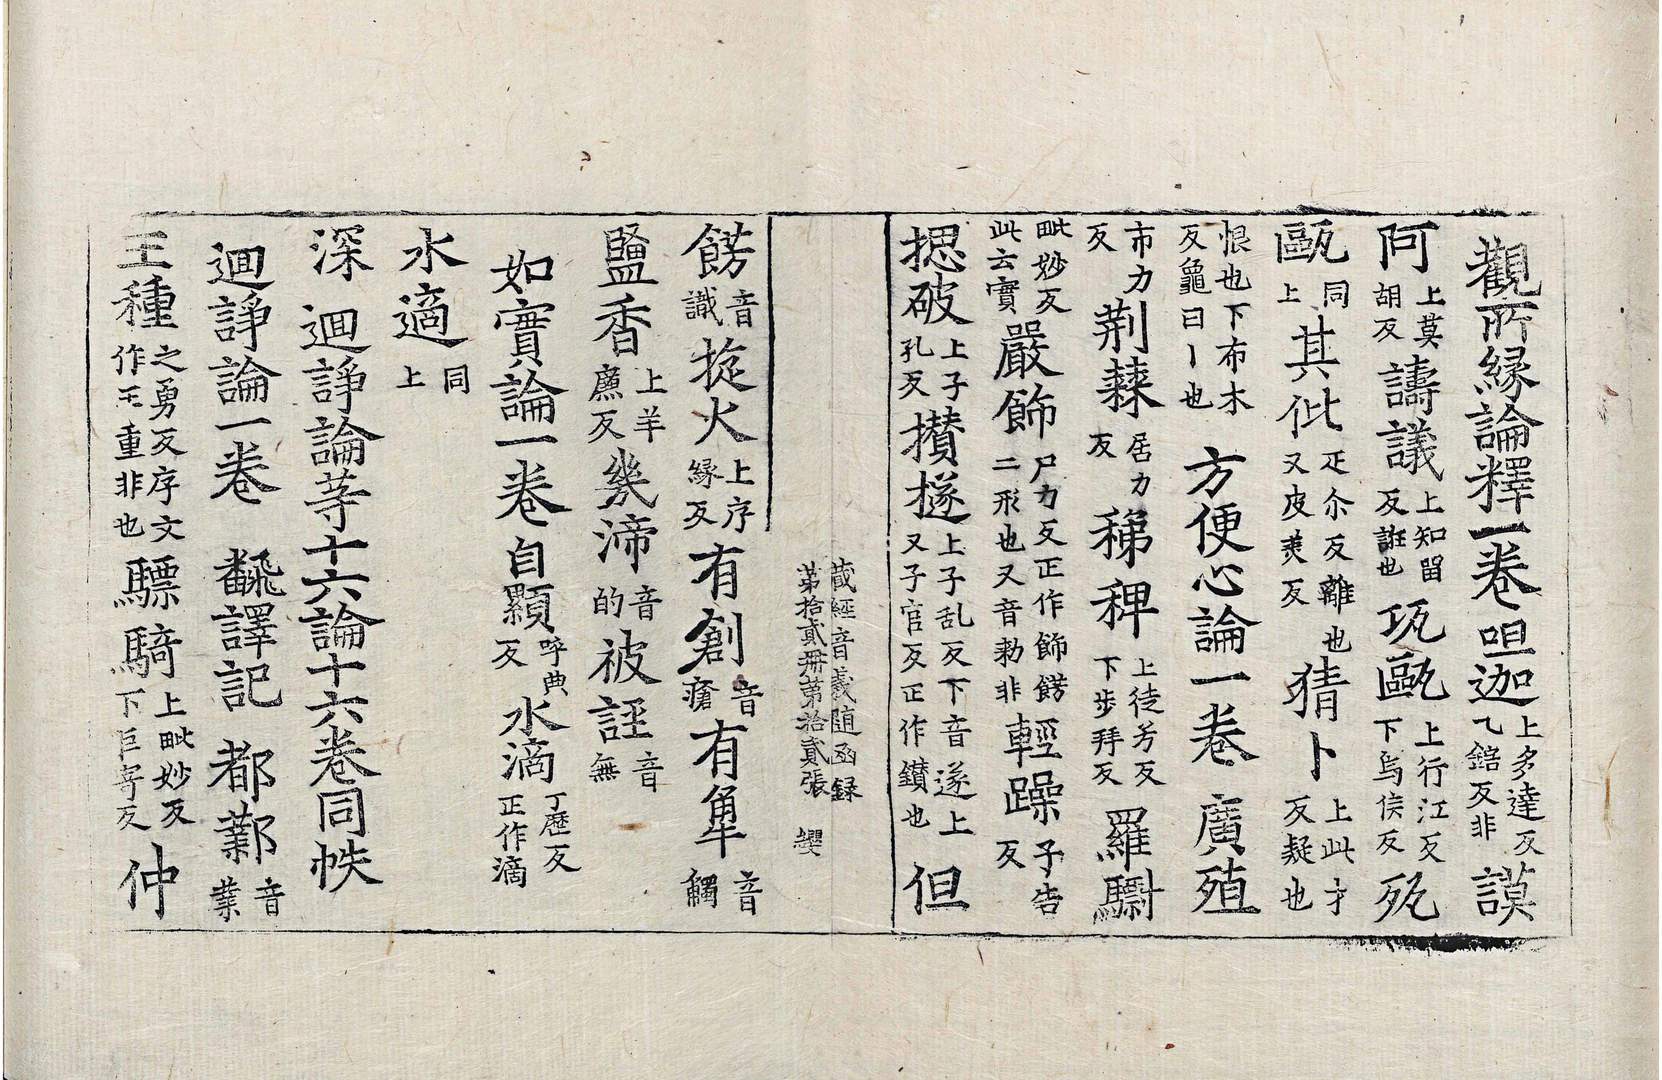 觀所縁論釋一卷 呾迦上多達反乙鎋反非 謨
阿上莫胡反 譸議上知留反誑也 瓨甌上行江反下烏侯反 㼚
甌同上 其仳疋尒反離也又皮美反 猜卜上此才反疑也
恨也下布木反龜曰丨也 方便心論一卷 廣殖
市力反 荆棘居力反 稊稗上徒兮反下步拜反 羅驧
毗妙反此云實 嚴飾尸力反正作飾餝二形也又音勑非 輕躁子告反
揌破上子孔反 攅㨞上子乱反下音遂上又子官反正作鑚也 但
藏經音義随函録
苐拾貳冊苐拾貳張 纓
餝音識 㨱火上序縁反 有創音瘡 有㹌音觸
鹽香上羊廉反 㡬渧音的 被誣音無
如實論一卷 自顯呼典反 水滴丁歴反正作滴
水適同上
深 迴諍論等十六論十六卷同帙
迴諍論一卷 飜譯記 都鄴音業
王種之勇反序文作王重非也 驃騎上毗妙反下巨寄反 仲